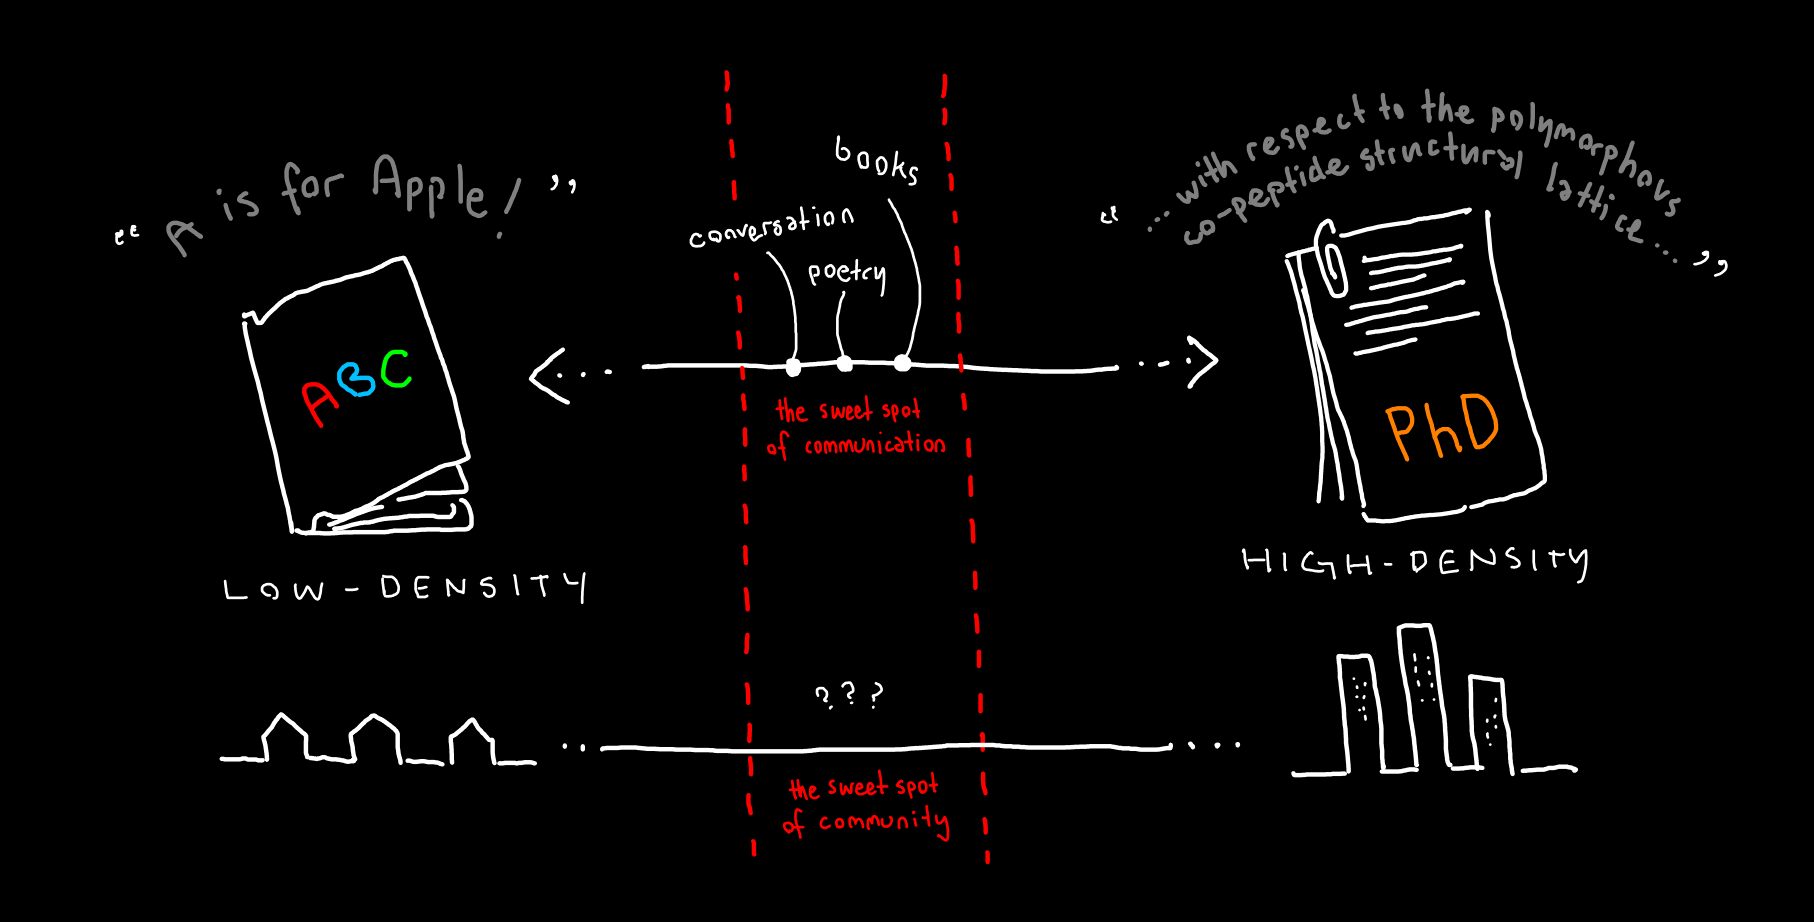 “A is for Apple!”
ABC
LOW-DENSITY
conversation
poetry
books
the sweet spot
of communication
“...with respect to the polymorphous
co-peptide structural lattice...”
PhD
HIGH-DENSITY
???
the sweet spot
of community